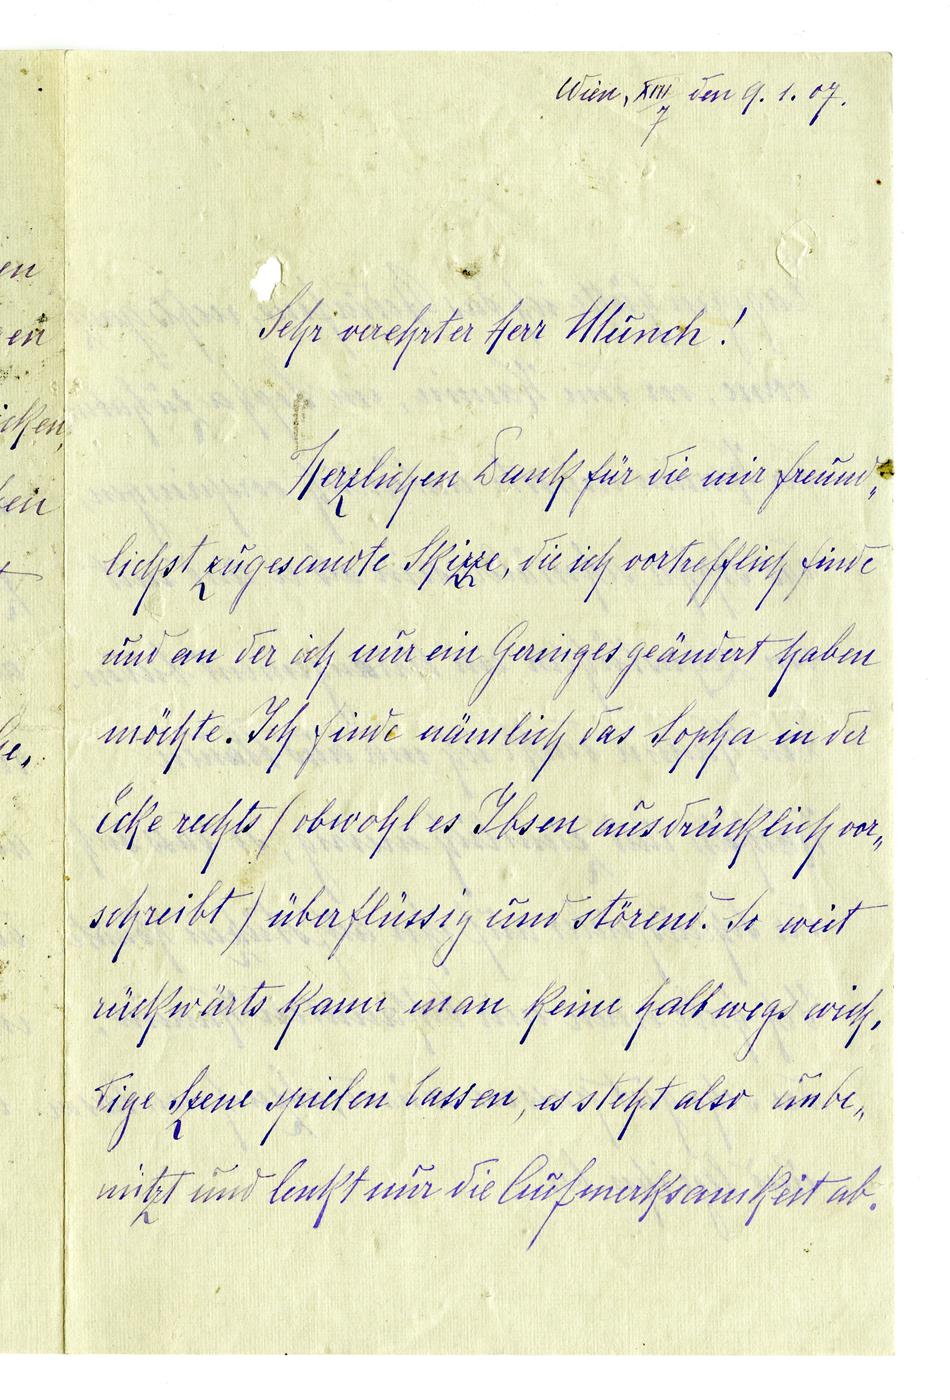 Wien, XIII/7 den 9. 1. 07.
Sehr verehrter Herr Munch!
Herzlichen Dank für die mir freund„
lichst zugesandte Skizze, die ich vortrefflich finde
und an der ich nur ein Geringes geändert haben
möchte. Ich finde nämlich das Sopha in der
Ecke rechts (obwohl es Ibsen ausdrücklich vor„
schreibt) überflüssig und störend. So weit
rückwärts kann man keine halbwegs wich„
tige Szene spielen lassen, es steht also unbe„
nützt und lenkt nur die Aufmerksamkeit ab.